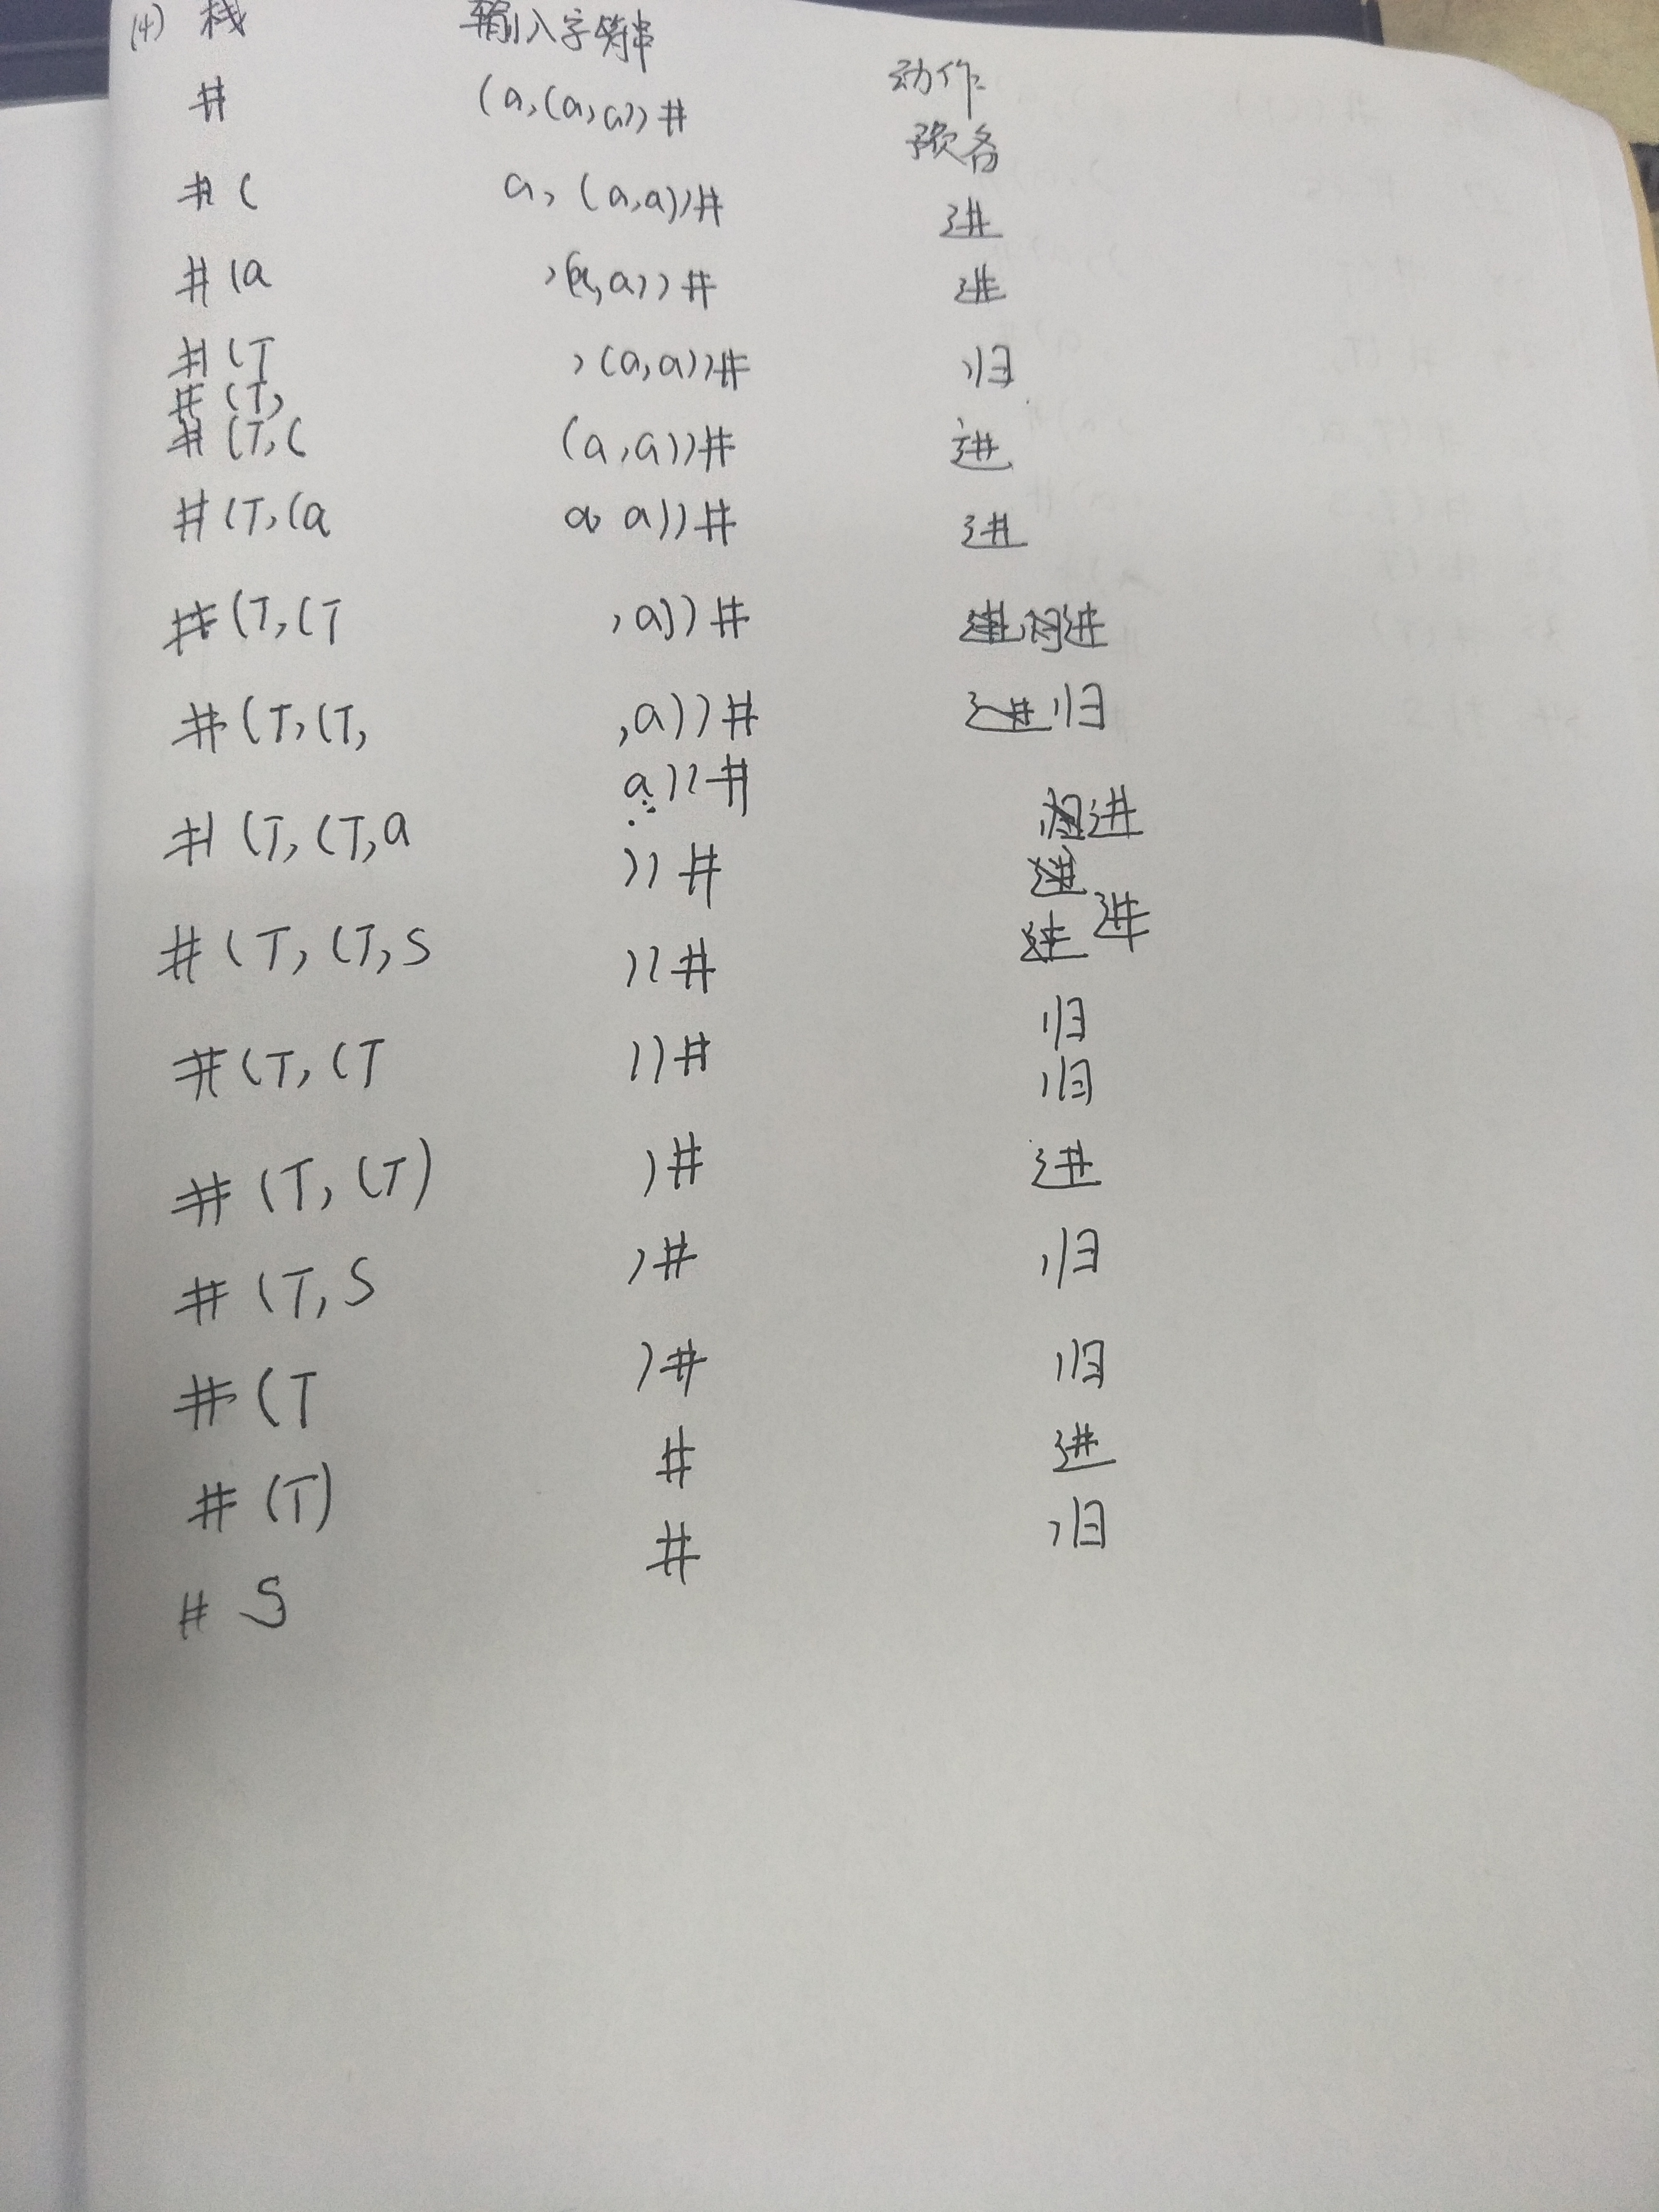 (4) 栈 输入字符串 动作
# (a,(a,a))# 预备
#( a,(a,a))# 进
#(a ,(a,a))# 进
#(T ,(a,a))# 归
#(T,
#(T,( (a,a))# 进
#(T,(a a, a))# 进
#(T,(T ,a))# 进
#(T,(T, ,a))# 归
a))#
#(T,(T,a ))# 进
#(T,(T,S ))# 进
归
#(T,(T ))# 归
#(T,(T) )# 进
#(T,S )# 归
#(T )# 归
#(T) # 进
#S # 归